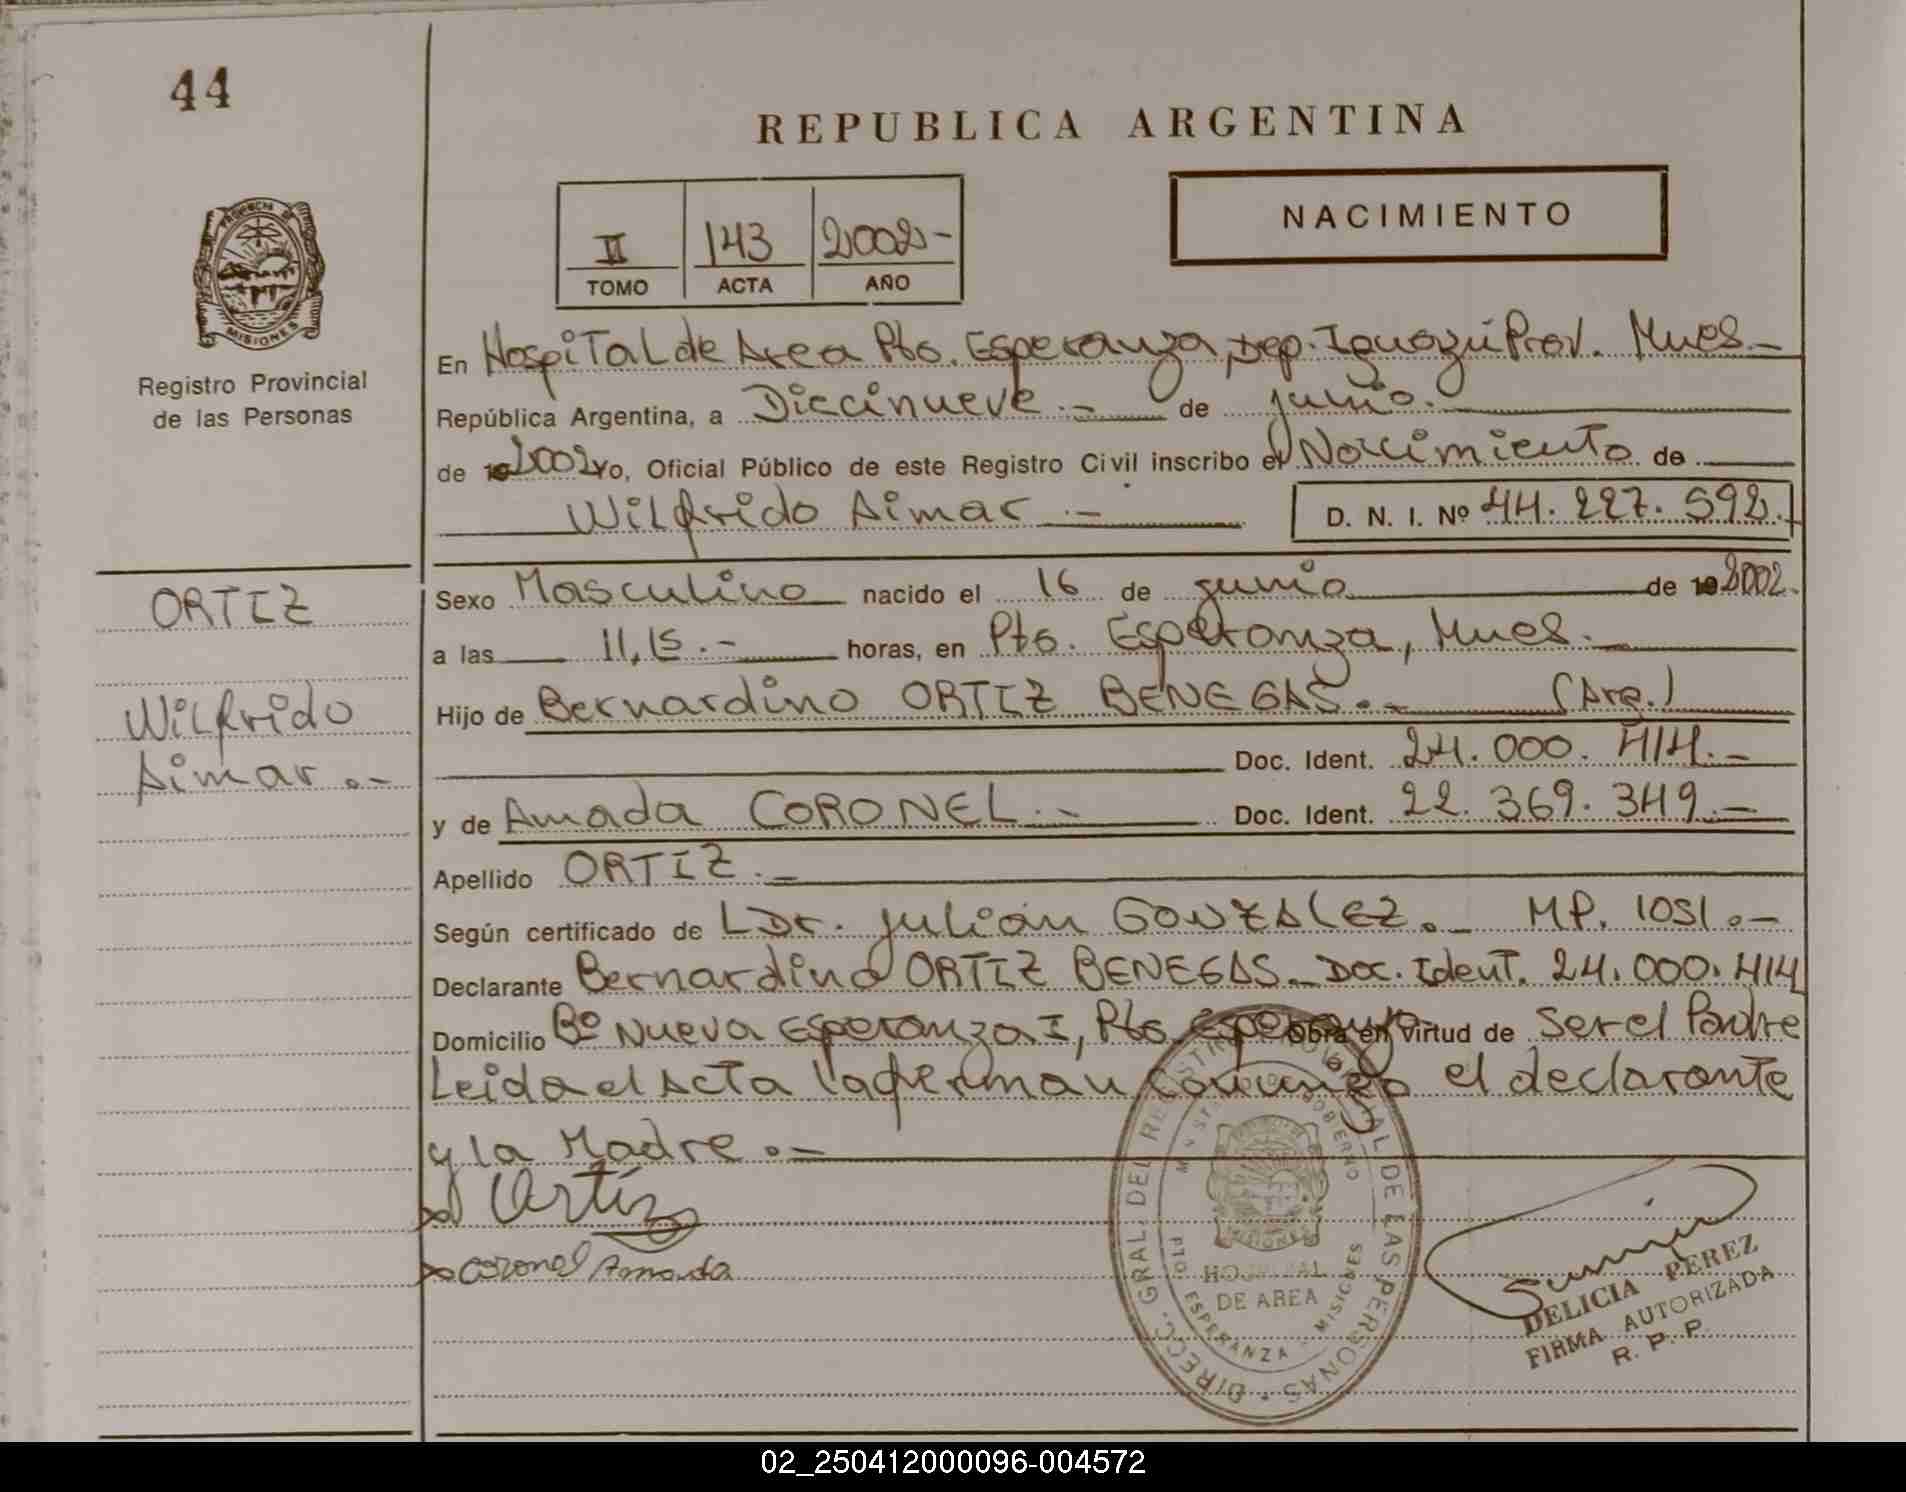 44
REPUBLICA ARGENTINA
NACIMIENTO
II 143 2002-
TOMO ACTA AÑO
MISIONES
Registro Provincial
de las Personas
En Hospital de Area Pto. Esperanza, Dep. Iguazú Prov. Mnes.-
República Argentina, a Diecinueve.- de junio.
de 192002 Yo, Oficial Público de este Registro Civil inscribo el Nacimiento de
Wilfrido Aimar .- D. N. I. Nº 44.227.592.
ORTIZ
Wilfrido
Aimar.-
Sexo Masculino nacido el 16 de junio de 192002.
a las 11,15.- horas, en Pto. Esperanza, Mnes.
Hijo de Bernardino ORTIZ BENEGAS.- (Arg.)
Doc. Ident. 24.000.414.-
y de Amada CORONEL.- Doc. Ident. 22.369.349.-
Apellido ORTIZ.-
Según certificado de L Dr. Julián GONZALEZ.- MP. 1051.-
Declarante Bernardino ORTIZ BENEGAS.- Doc. Ident. 24.000.414
Domicilio Bº Nueva Esperanza I, Pto. Esperanza Obra en virtud de Ser el Padre
Leida el Acta la firman conmigo el declarante
y la Madre.-
Ortíz
Coronel Amada
DIRECC. GRAL. DEL REGISTRO PROVINCIAL DE LAS PERSONAS
GOBIERNO
MISIONES
HOSPITAL
DE AREA
PTO. ESPERANZA - MISIONES
DELICIA PEREZ
FIRMA AUTORIZADA
R. P. P.
02_250412000096-004572